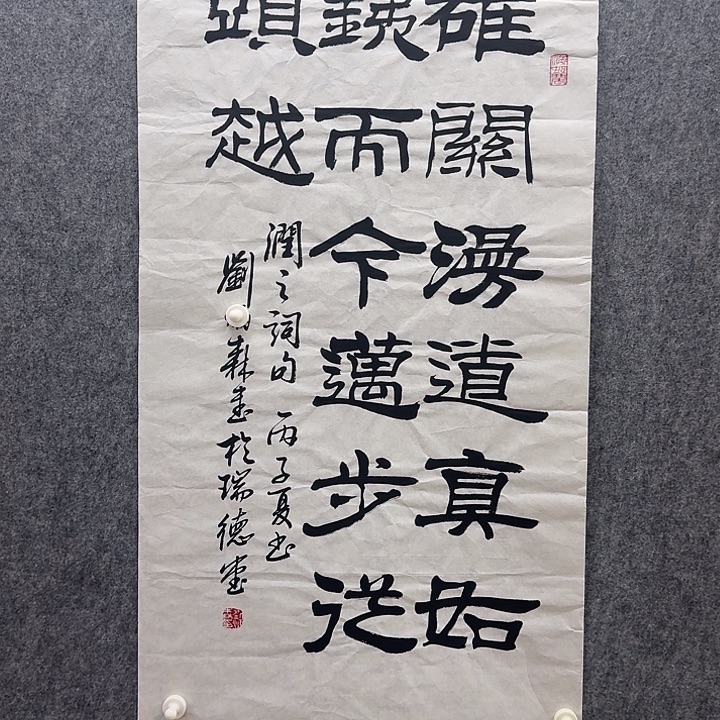 雄關漫道真如
銕而今邁步從
頭越
潤之詞句 丙子夏书
劉 森書於瑞德堂